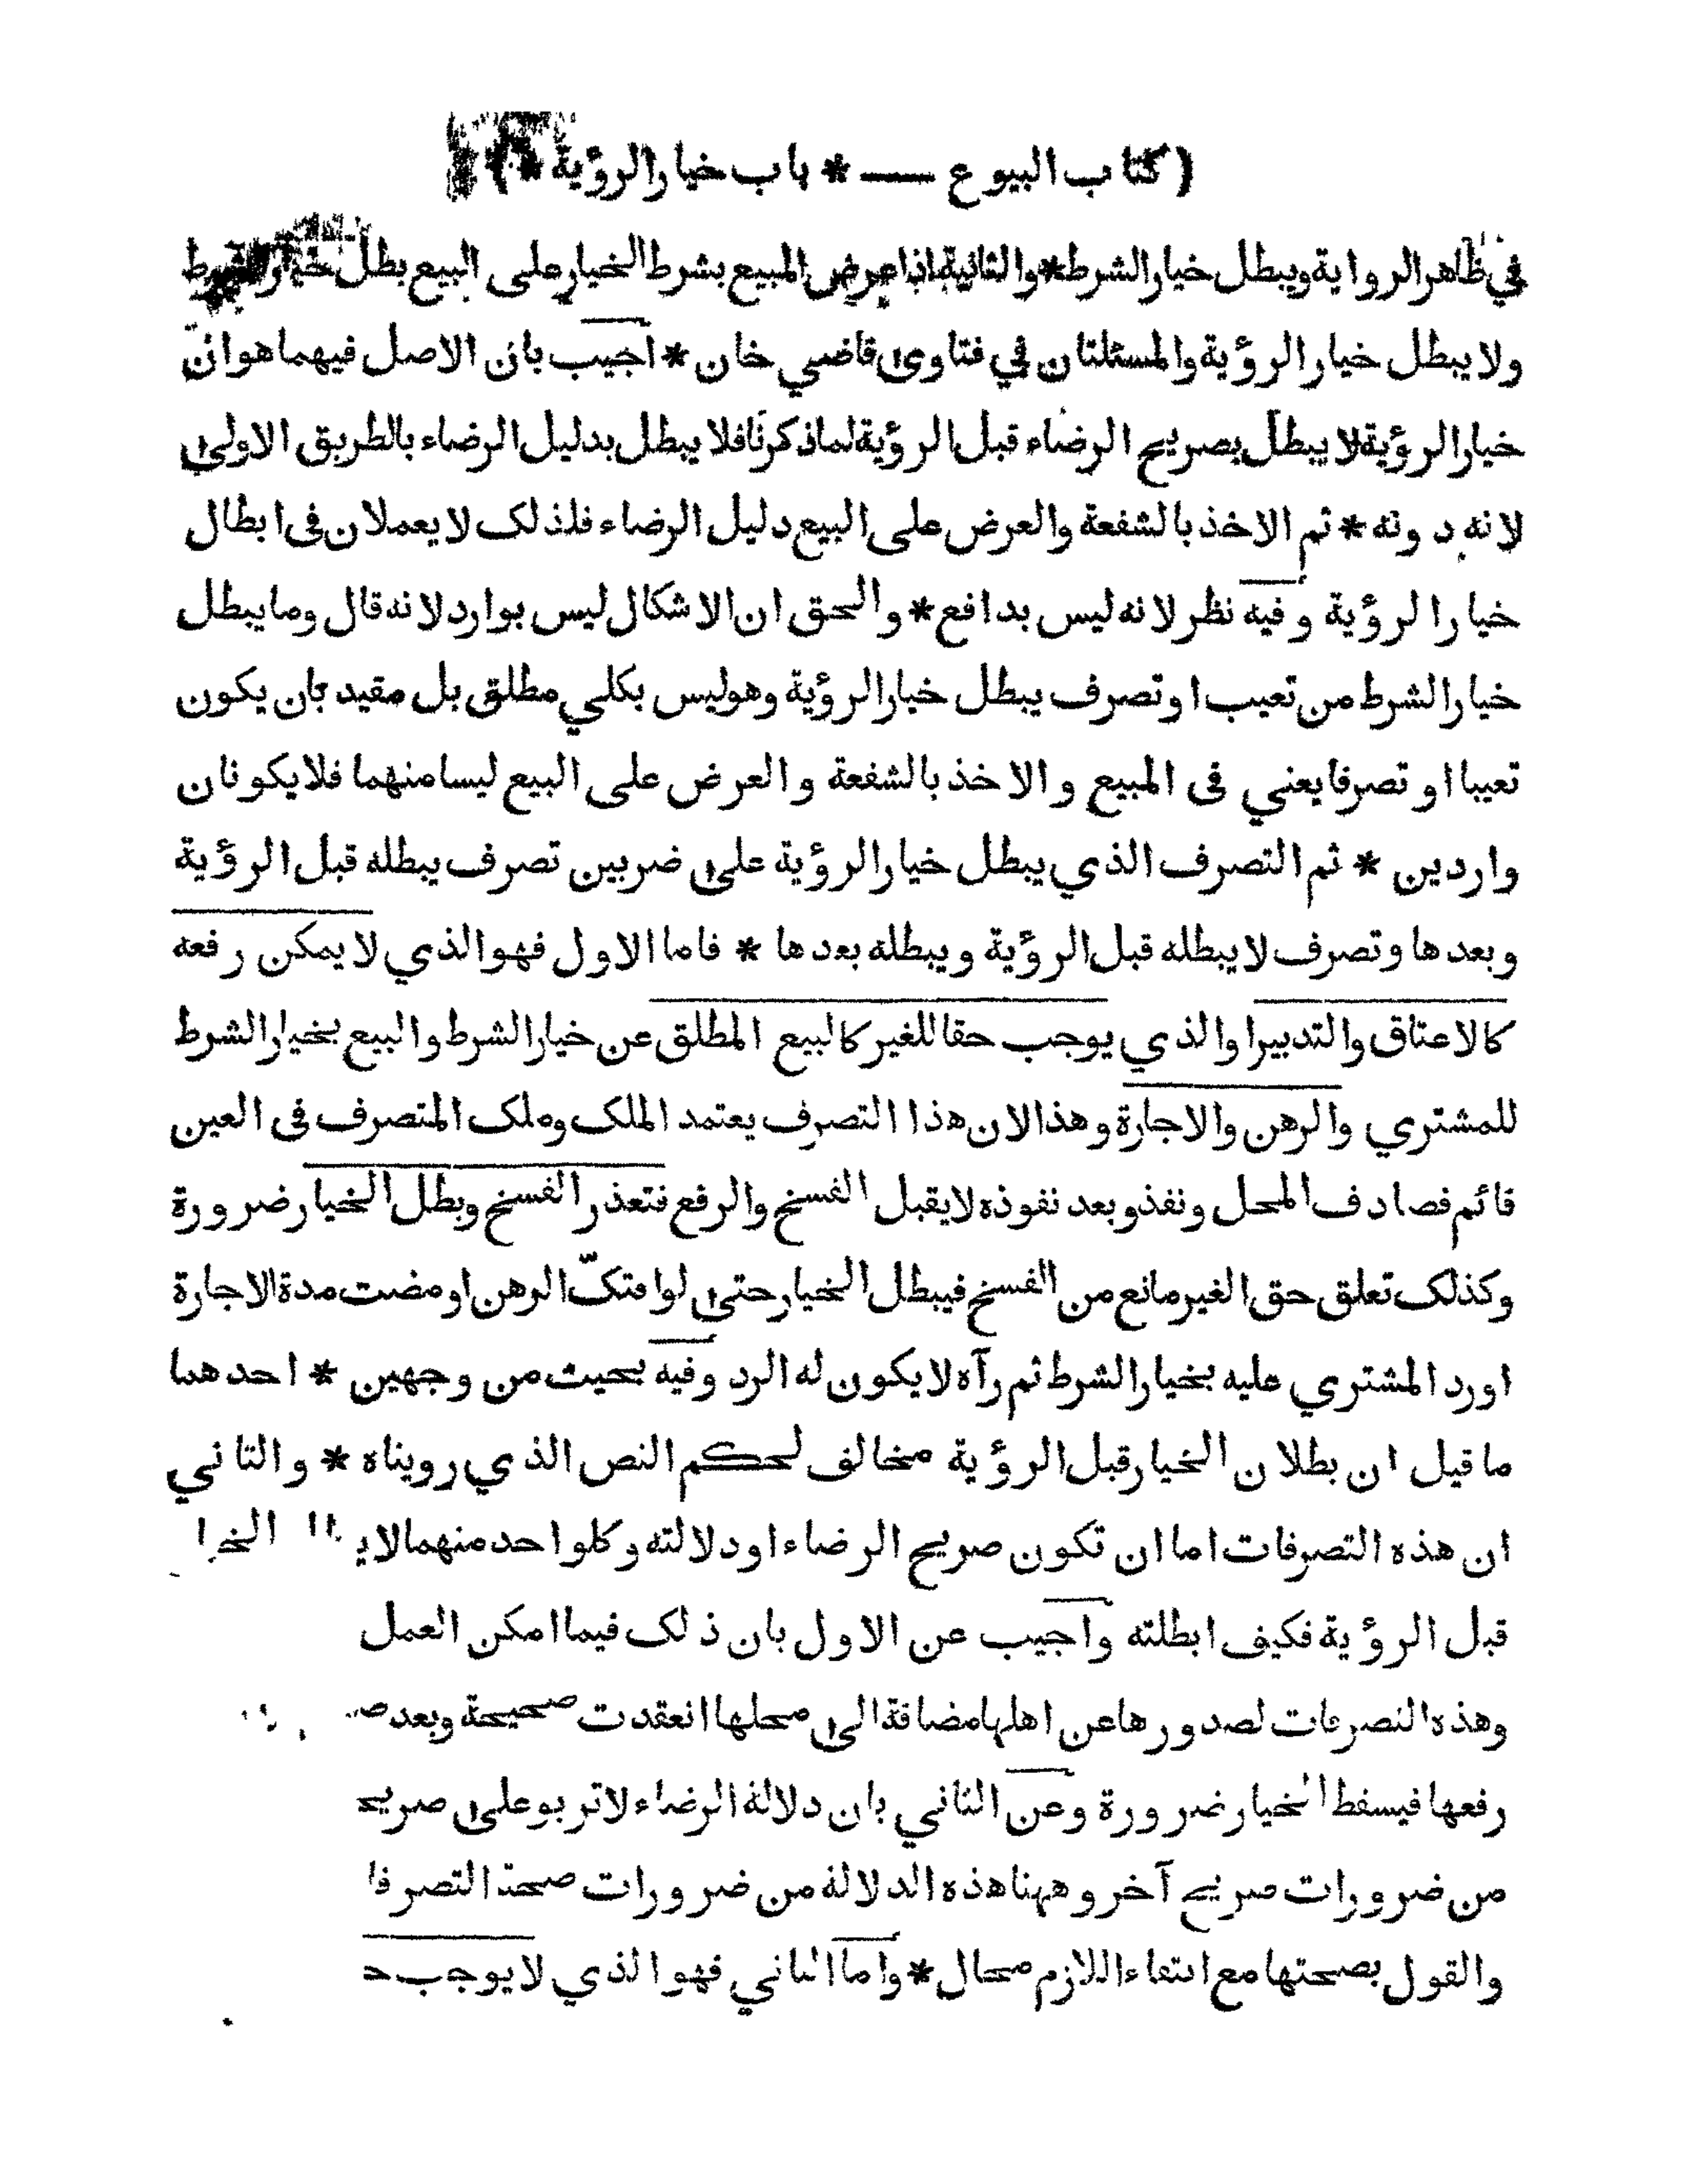 ( كتاب البيوع — * باب خيار الرؤية * )
في ظاهر الرواية ويبطل خيار الشرط * والثانية اذا عرض المبيع بشرط الخيار على البيع بطل خيار الشرط
ولا يبطل خيار الرؤية والمسئلتان في فتاوى قاضي خان * اجيب بان الاصل فيهما هو انّ
خيار الرؤية لا يبطل بصريح الرضاء قبل الرؤية لما ذكرنا فلا يبطل بدليل الرضاء بالطريق الاولى
لانه دونه * ثم الاخذ بالشفعة والعرض على البيع دليل الرضاء فلذلك لا يعملان فى ابطال
خيار الرؤية وفيه نظر لانه ليس بدافع * والحق ان الاشكال ليس بوارد لانه قال وما يبطل
خيار الشرط من تعيب او تصرف يبطل خيار الرؤية وهو ليس بكلي مطلق بل مقيد بان يكون
تعيبا او تصرفا يعني فى المبيع والاخذ بالشفعة والعرض على البيع ليسا منهما فلا يكونان
واردين * ثم التصرف الذي يبطل خيار الرؤية على ضربين تصرف يبطله قبل الرؤية
وبعدها وتصرف لا يبطله قبل الرؤية ويبطله بعدها * فاما الاول فهو الذي لا يمكن رفعه
كالاعتاق والتدبير او الذي يوجب حقا للغير كالبيع المطلق عن خيار الشرط والبيع بخيار الشرط
للمشتري والرهن والاجارة وهذا لان هذا التصرف يعتمد الملك وملك المتصرف فى العين
قائم فصادف المحل ونفذ وبعد نفوذه لا يقبل الفسخ والرفع فتعذر الفسخ وبطل الخيار ضرورة
وكذلك تعلق حق الغير مانع من الفسخ فيبطل الخيار حتى لو افتكّ الرهن او مضت مدة الاجارة
او رد المشتري عليه بخيار الشرط ثم رآه لا يكون له الرد وفيه بحيث من وجهين * احدهما
ما قيل ان بطلان الخيار قبل الرؤية مخالف لحكم النص الذي رويناه * والثاني
ان هذه التصرفات اما ان تكون صريح الرضاء او دلالته وكل واحد منهما لا
قبل الرؤية فكيف ابطلته واجيب عن الاول بان ذلك فيما امكن العمل
وهذه التصرفات لصدورها عن اهلها مضافة الى محلها انعقدت صحيحة وبعد
رفعها فيسقط الخيار ضرورة وعن الثاني بان دلالة الرضاء لا تربو على
من ضرورات صريح آخر وههنا هذه الدلالة من ضرورات صحة
والقول بصحتها مع انتفاء اللازم محال * واما الثاني فهو الذي لا يوجب